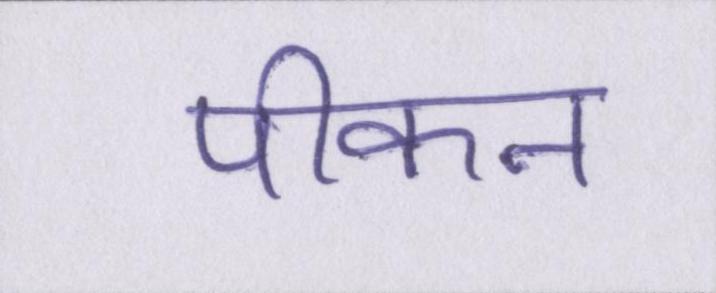 पीकन